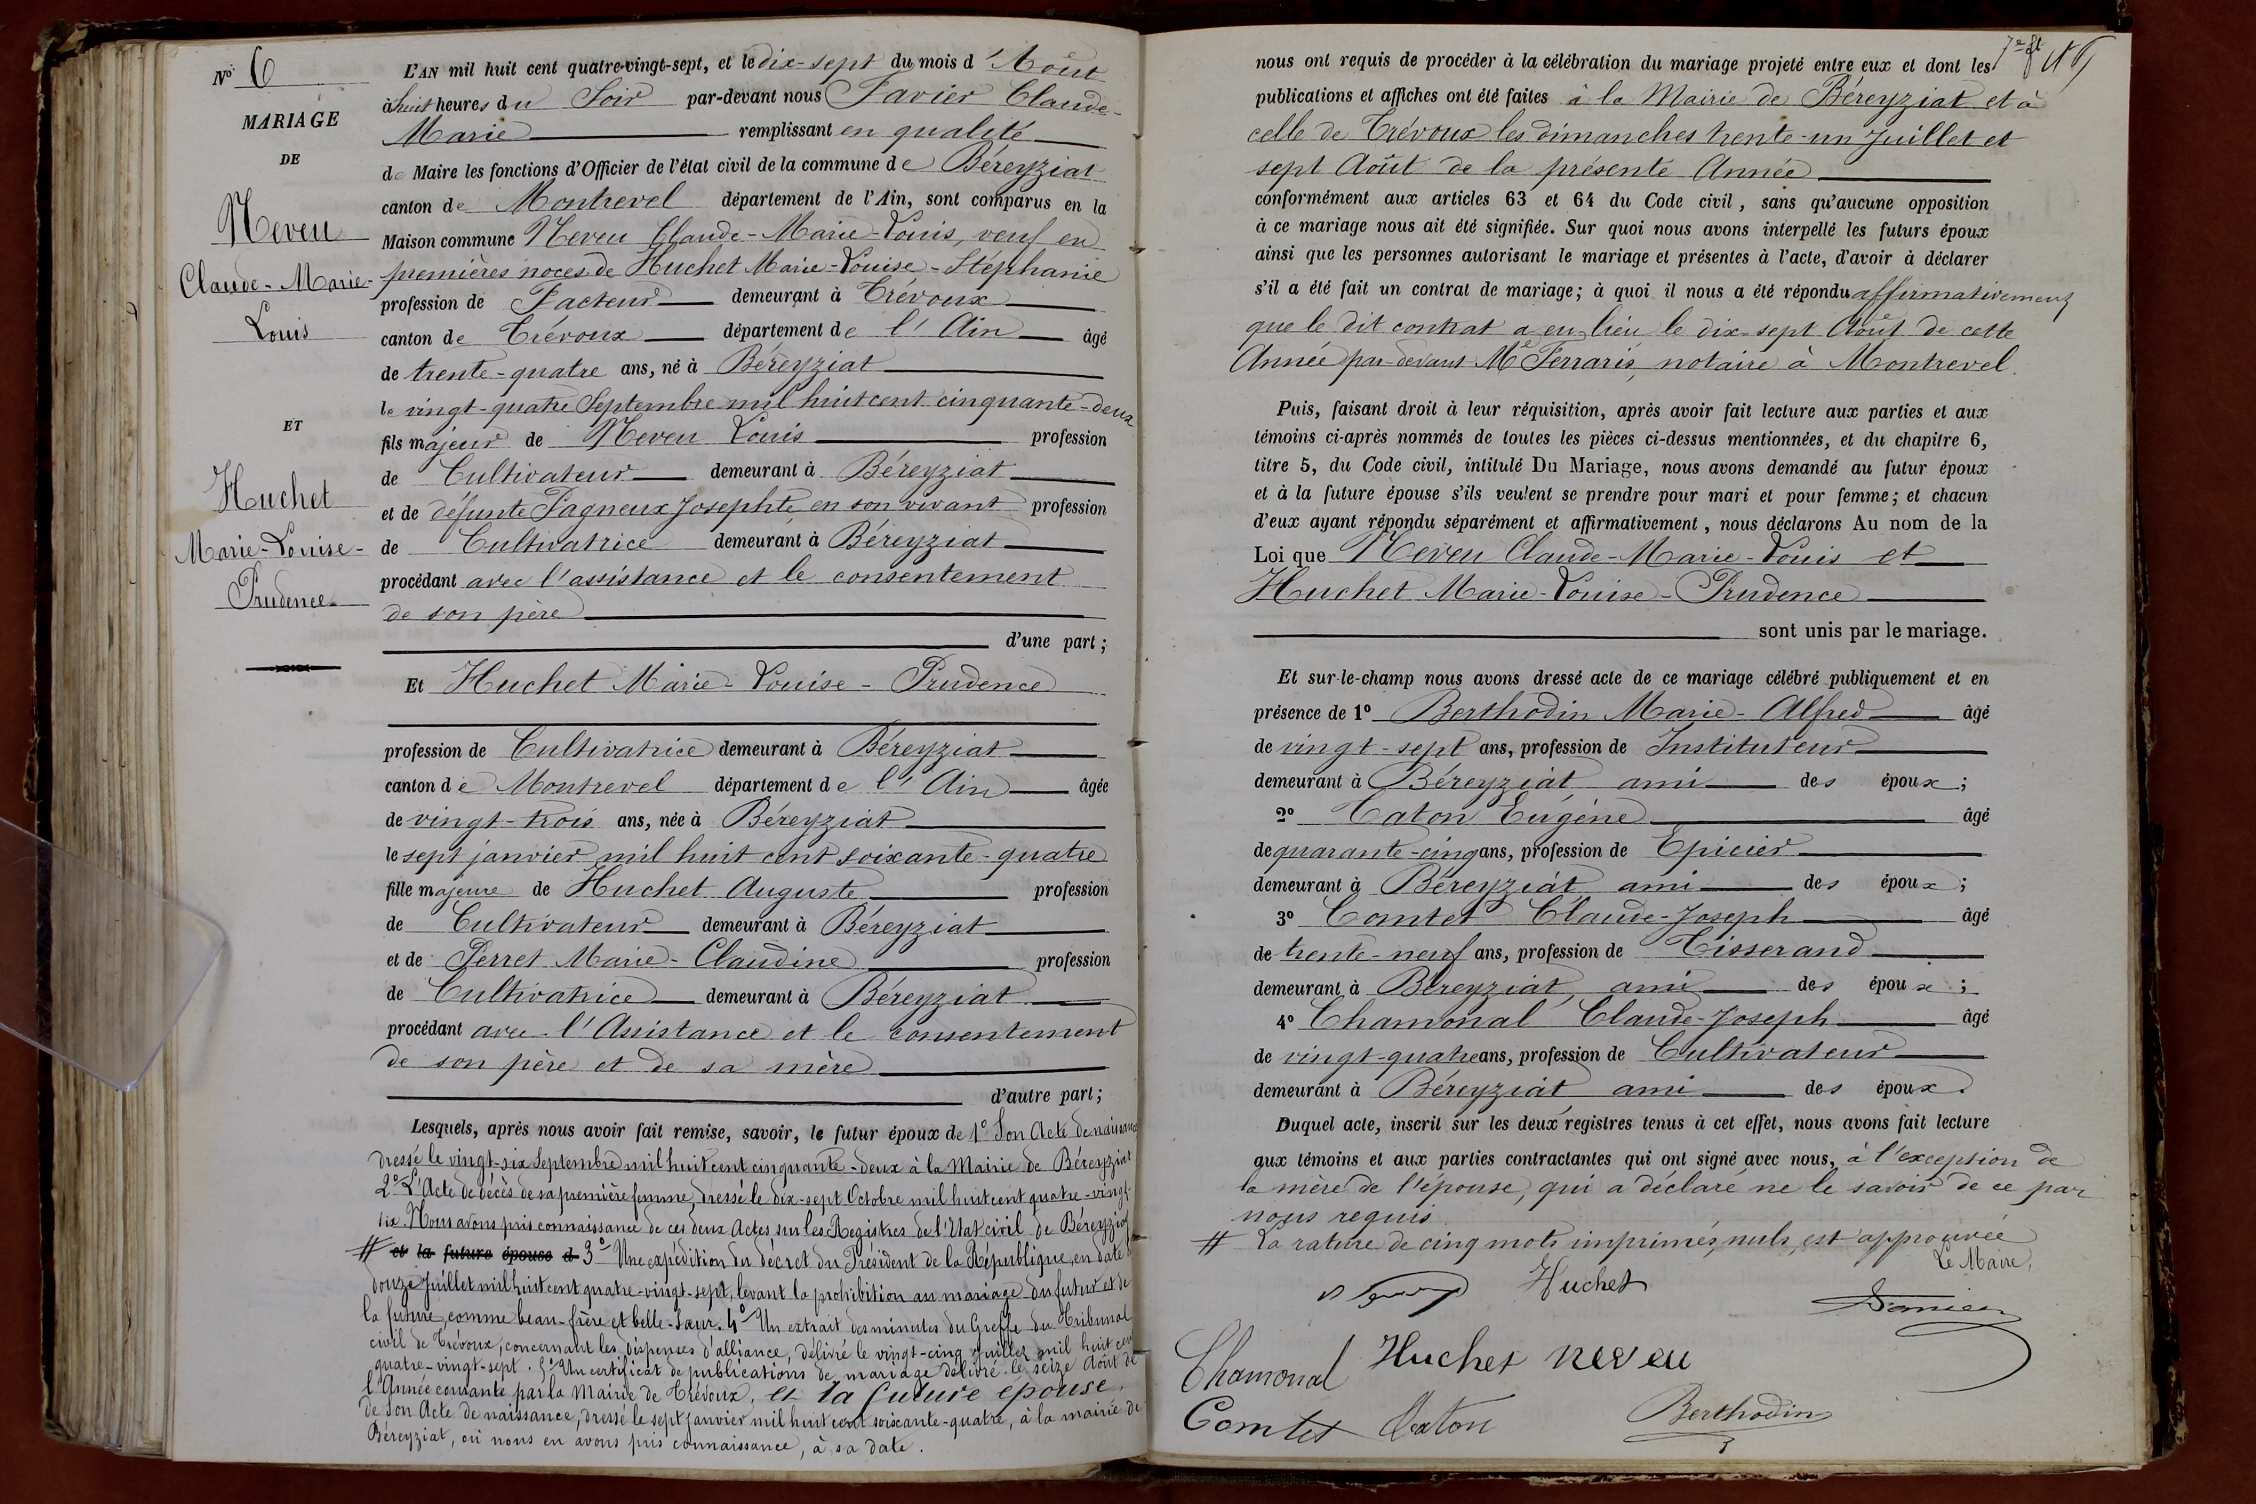 No 6
MARIAGE
DE
Neveu
Claude-Marie-
Louis
ET
Huchet
Marie-Louise-
Prudence
L'AN mil huit cent quatre-vingt-sept, et le dix-sept du mois d'Août
à huit heures du Soir par-devant nous Favier Claude-
Marie remplissant en qualité
de Maire les fonctions d'Officier de l'état civil de la commune de Béreyziat
canton de Montrevel département de l'Ain, sont comparus en la
Maison commune Neveu Claude-Marie-Louis, veuf en
premières noces de Huchet Marie-Louise-Stéphanie
profession de Facteur demeurant à Trévoux
canton de Trévoux département de l'Ain âgé
de trente-quatre ans, né à Béreyziat
le vingt-quatre Septembre mil huit cent cinquante-deux
fils majeur de Neveu Louis profession
de Cultivateur demeurant à Béreyziat
et de défunte Pagneux Josephte en son vivant profession
de Cultivatrice demeurant à Béreyziat
procédant avec l'assistance et le consentement
de son père
d'une part;
Et Huchet Marie-Louise-Prudence
profession de Cultivatrice demeurant à Béreyziat
canton de Montrevel département de l'Ain âgée
de vingt-trois ans, née à Béreyziat
le sept janvier mil huit cent soixante-quatre
fille majeure de Huchet Auguste profession
de Cultivateur demeurant à Béreyziat
et de Perret Marie-Claudine profession
de Cultivatrice demeurant à Béreyziat
procédant avec l'Assistance et le consentement
de son père et de sa mère
d'autre part;
Lesquels, après nous avoir fait remise, savoir, le futur époux de 1° Son Acte de naissance
dressé le vingt-six Septembre mil huit cent cinquante-deux à la Mairie de Béreyziat
2° L'Acte de décès de sa première femme, dressé le dix-sept Octobre mil huit cent quatre-vingt-
six. Nous avons pris connaissance de ces deux Actes sur les Registres de l'Etat civil de Béreyziat
# et la future épouse d 3° Une expédition du décret du Président de la République, en date du
douze Juillet mil huit cent quatre-vingt-sept, levant la prohibition au mariage du futur et de
la future, comme beau-frère et belle-sœur. 4° Un extrait des minutes du Greffe du Tribunal
civil de Trévoux, concernant les dispenses d'alliance, délivré le vingt-cinq juillet mil huit cent
quatre-vingt-sept. 5° Un certificat de publications de mariage délivré le seize Août de
l'Année courante par la Mairie de Trévoux, et la future épouse,
de son Acte de naissance, dressé le sept janvier mil huit cent soixante-quatre, à la mairie de
Béreyziat, où nous en avons pris connaissance, à sa date.
nous ont requis de procéder à la célébration du mariage projeté entre eux et dont les
publications et affiches ont été faites à la Mairie de Béreyziat et à
celle de Trévoux les dimanches trente-un Juillet et
sept Août de la présente Année
conformément aux articles 63 et 64 du Code civil, sans qu'aucune opposition
à ce mariage nous ait été signifiée. Sur quoi nous avons interpellé les futurs époux
ainsi que les personnes autorisant le mariage et présentes à l'acte, d'avoir à déclarer
s'il a été fait un contrat de mariage; à quoi il nous a été répondu affirmativement
que le dit contrat a eu lieu le dix-sept Août de cette
Année par-devant Me Ferraris, notaire à Montrevel.
Puis, faisant droit à leur réquisition, après avoir fait lecture aux parties et aux
témoins ci-après nommés de toutes les pièces ci-dessus mentionnées, et du chapitre 6,
titre 5, du Code civil, intitulé Du Mariage, nous avons demandé au futur époux
et à la future épouse s'ils veulent se prendre pour mari et pour femme; et chacun
d'eux ayant répondu séparément et affirmativement, nous déclarons Au nom de la
Loi que Neveu Claude-Marie-Louis et
Huchet Marie-Louise-Prudence
sont unis par le mariage.
Et sur-le-champ nous avons dressé acte de ce mariage célébré publiquement et en
présence de 1° Berthodin Marie-Alfred âgé
de vingt-sept ans, profession de Instituteur
demeurant à Béreyziat ami des époux;
2° Caton Eugène âgé
de quarante-cinq ans, profession de Epicier
demeurant à Béreyziat ami des époux;
3° Comtet Claude-Joseph âgé
de trente-neuf ans, profession de Tisserand
demeurant à Béreyziat, ami des époux;
4° Chamonal Claude-Joseph âgé
de vingt-quatre ans, profession de Cultivateur
demeurant à Béreyziat ami des époux.
Duquel acte, inscrit sur les deux registres tenus à cet effet, nous avons fait lecture
aux témoins et aux parties contractantes qui ont signé avec nous, à l'exception de
la mère de l'épouse, qui a déclaré ne le savoir de ce par
nous requis.
# La rature de cinq mots imprimés, nuls, est approuvée
Le Maire,
Huchet
Chamonal Huchet neveu
Comtet Caton Berthodin